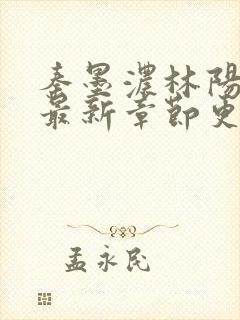 秦墨濃林陽
最新章節更
孟永民